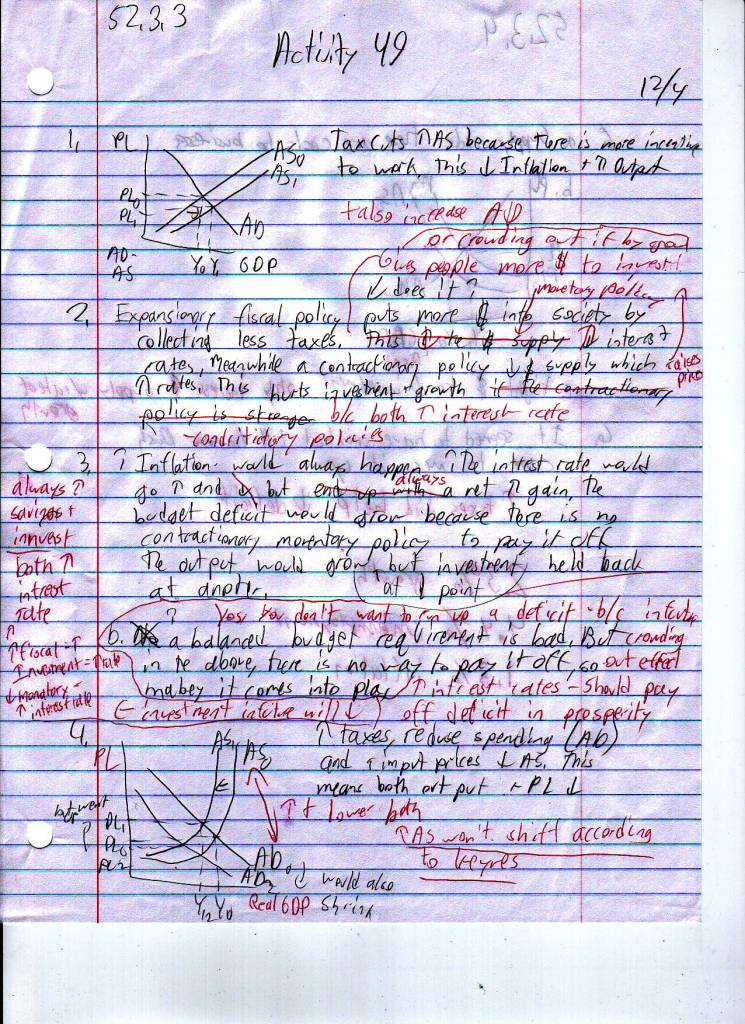 52.3.3
Activity 49
12/4
1. PL
AS0
AS1
PL0
PL1
AD
AD-
AS
Y0 Y1 GDP
Tax cuts ↑AS because there is more incentive
to work, this ↓ Inflation + ↑ Output
+ also increase AD
or crowding out if by
Gives people more $ to invest
↓ does it?
monetary policy
2. Expansionary fiscal policy puts more $ into society by
collecting less taxes. This the $ supply ↑ interest
rates, Meanwhile a contractionary policy ↓ $ supply which raises
↑ rates. This hurts investment + growth if the contractionary
policy is stronger b/c both ↑ interest rate
policies
3. ? Inflation would always happen. ↑The intrest rate would
go ↑ and ↓ but end up with always a net ↑ gain, the
budget deficit would grow because there is no
contractionary morentary policy to pay it off
The output would grow but investment held back
at
at 1 point
always ?
savings +
innvest
both ↑
intrest
rate
↑
↑ fiscal = ↑
Invesment = ↑ rate
↓ monatary -
↑ interest rate
? Yes, you don't want to run up a deficit - b/c in future
b. a balanced budget requirement is bad, But crowding
in the above, there is no way to pay it off, so out effect
mabey it comes into play ↑ intrest rates - Should pay
← investment infutue will ↓ off deficit in prosperity
4. PL
AS1
AS0
but went
up
↑
PL1
PL0
PL2
AD0
AD2
↓ would also
Y12 Y0 Real GDP shrink
↑ taxes, reduse spending (AD)
and ↑ input prices ↓ AS. This
means both out put + PL ↓
↑ + lower both
↑AS won't shift according
to keynes